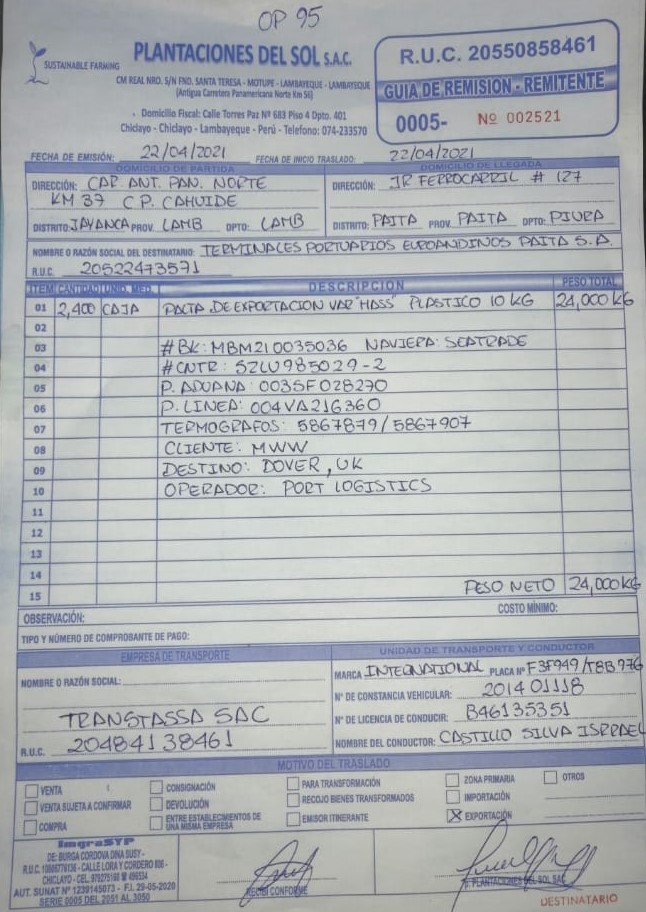 OP 95
SUSTAINABLE FARMING
PLANTACIONES DEL SOL S.A.C.
CM REAL NRO. S/N FND. SANTA TERESA - MOTUPE - LAMBAYEQUE - LAMBAYEQUE
(Antigua Carretera Panamericana Norte Km 56)
Domicilio Fiscal: Calle Torres Paz Nº 683 Piso 4 Dpto. 401
Chiclayo - Chiclayo - Lambayeque - Perú - Telefono: 074-233570
R.U.C. 20550858461
GUIA DE REMISION - REMITENTE
0005- Nº 002521
FECHA DE EMISIÓN: 22/04/2021 FECHA DE INICIO TRASLADO: 22/04/2021
DOMICILIO DE PARTIDA
DIRECCIÓN: CAR. ANT. PAN. NORTE
KM 37 C P. CAHUIDE
DISTRITO: JAYANCA PROV. LAMB DPTO: LAMB
DOMICILIO DE LLEGADA
DIRECCIÓN: JR FERROCARRIL # 127
DISTRITO: PAITA PROV. PAITA DPTO: PIURA
NOMBRE O RAZÓN SOCIAL DEL DESTINATARIO: TERMINALES PORTUARIOS EUROANDINOS PAITA S.A.
R.U.C. 20522473571
ITEM CANTIDAD UNID. MED. DESCRIPCION PESO TOTAL
01 2,400 CAJA PALTA DE EXPORTACION VAR "HASS" PLASTICO 10 KG 24,000 KG
02
03 #BK: MBM210035036 NAVIERA: SEATRADE
04 #CNTR: SZLU985029-2
05 P. ADUANA: 0035F028270
06 P. LINEA: 004VA216360
07 TERMOGRAFOS: 5867879/5867907
08 CLIENTE: MWW
09 DESTINO: DOVER, UK
10 OPERADOR: PORT LOGISTICS
11
12
13
14
15 PESO NETO 24,000 KG
OBSERVACIÓN: COSTO MÍNIMO:
TIPO Y NÚMERO DE COMPROBANTE DE PAGO:
EMPRESA DE TRANSPORTE
NOMBRE O RAZÓN SOCIAL:
TRANSTASSA SAC
R.U.C. 20484138461
UNIDAD DE TRANSPORTE Y CONDUCTOR
MARCA INTERNATIONAL PLACA Nº F3F949/T8B976
Nº DE CONSTANCIA VEHICULAR: 201401118
Nº DE LICENCIA DE CONDUCIR: B46135351
NOMBRE DEL CONDUCTOR: CASTILLO SILVA ISRRAEL
MOTIVO DEL TRASLADO
VENTA CONSIGNACIÓN PARA TRANSFORMACIÓN ZONA PRIMARIA OTROS
VENTA SUJETA A CONFIRMAR DEVOLUCIÓN RECOJO BIENES TRANSFORMADOS IMPORTACIÓN
COMPRA ENTRE ESTABLECIMIENTOS DE UNA MISMA EMPRESA EMISOR ITINERANTE X EXPORTACIÓN
ImgraSYP
DE: BURGA CORDOVA DINA SUSY -
CALLE LORA Y CORDERO
CHICLAYO - CEL.
AUT. SUNAT Nº 1239145073 - F.I. 29-05-2020
SERIE 0005 DEL 2051 AL 3050
RECIBI CONFORME
P. PLANTACIONES DEL SOL SAC
DESTINATARIO